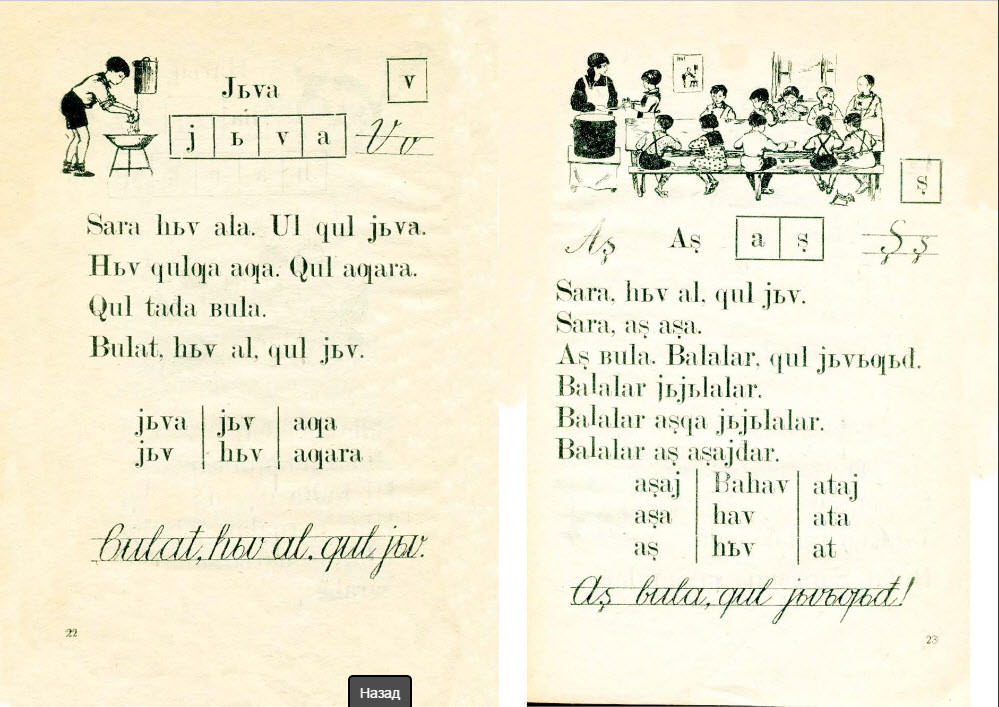 Jьva
v
j ь v a
V v
Sara hьv ala. Ul qul jьva.
Hьv qulƣa aƣa. Qul aƣara.
Qul tađa ʙula.
Bulat, hьv al, qul jьv.
jьva jьv aƣa
jьv hьv aƣara
Bulat, hьv al, qul jьv.
22
ş
Aş Aş a ş Ş ş
Sara, hьv al, qul jьv.
Sara, aş aşa.
Aş ʙula. Balalar, qul jьvьƣьđ.
Balalar jьjьlalar.
Balalar aşqa jьjьlalar.
Balalar aş aşajđar.
aşaj Bahav ataj
aşa hav ata
aş hьv at
Aş bula, qul jьvьƣьđ!
23
Назад